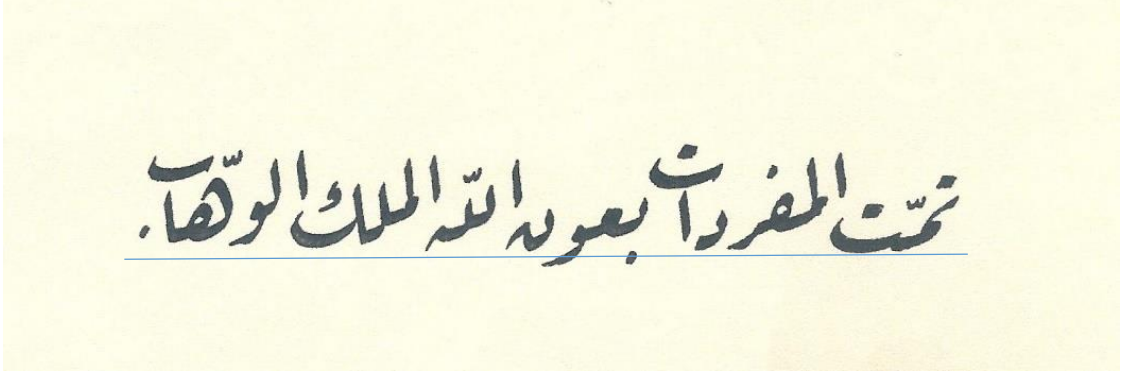 تمّت المفردات بعون اللّه الملك الوهّاب.